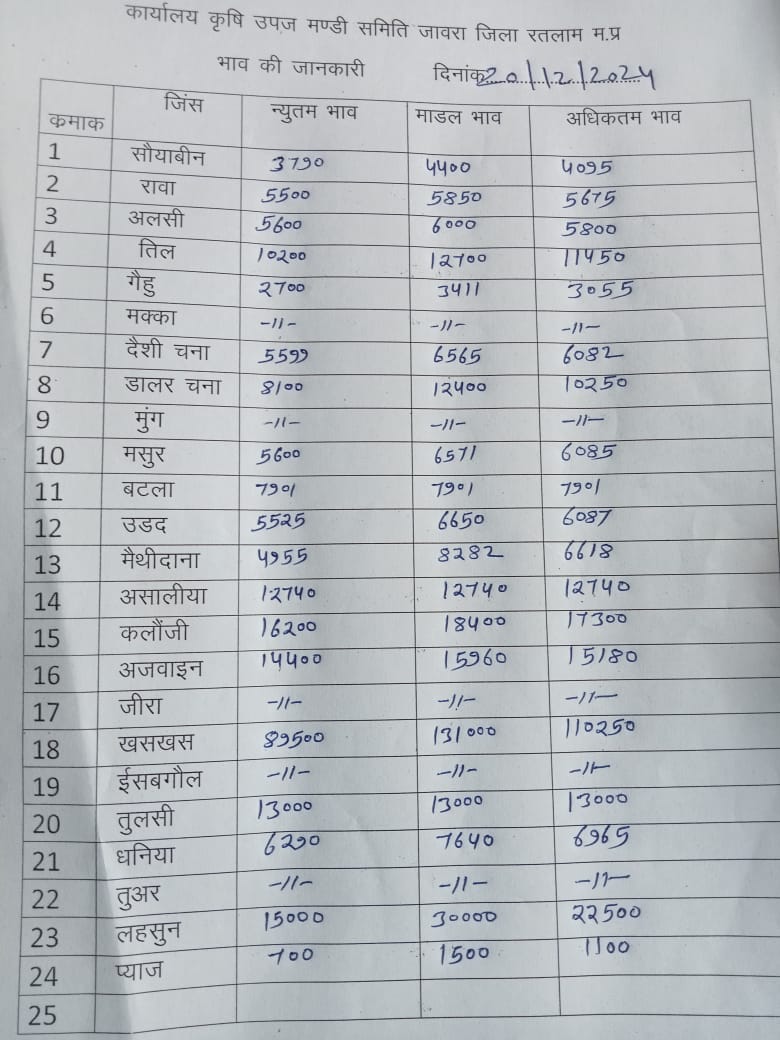 कार्यालय कृषि उपज मण्डी समिति जावरा जिला रतलाम म.प्र
भाव की जानकारी दिनांक 20/12/2024
कमाक जिंस न्युतम भाव माडल भाव अधिकतम भाव
1 सौयाबीन 3790 4400 4095
2 रावा 5500 5850 5675
3 अलसी 5600 6000 5800
4 तिल 10200 12700 11450
5 गैहु 2700 3411 3055
6 मक्का -11- -11- -11-
7 दैशी चना 5599 6565 6082
8 डालर चना 8100 12400 10250
9 मुंग -11- -11- -11-
10 मसुर 5600 6571 6085
11 बटला 7901 7901 7901
12 उडद 5525 6650 6087
13 मैथीदाना 4955 8282 6618
14 असालीया 12740 12740 12740
15 कलौंजी 16200 18400 17300
16 अजवाइन 14400 15960 15180
17 जीरा -11- -11- -11-
18 खसखस 89500 131000 110250
19 ईसबगौल -11- -11- -11-
20 तुलसी 13000 13000 13000
21 धनिया 6290 7640 6965
22 तुअर -11- -11- -11-
23 लहसुन 15000 30000 22500
24 प्याज 700 1500 1100
25